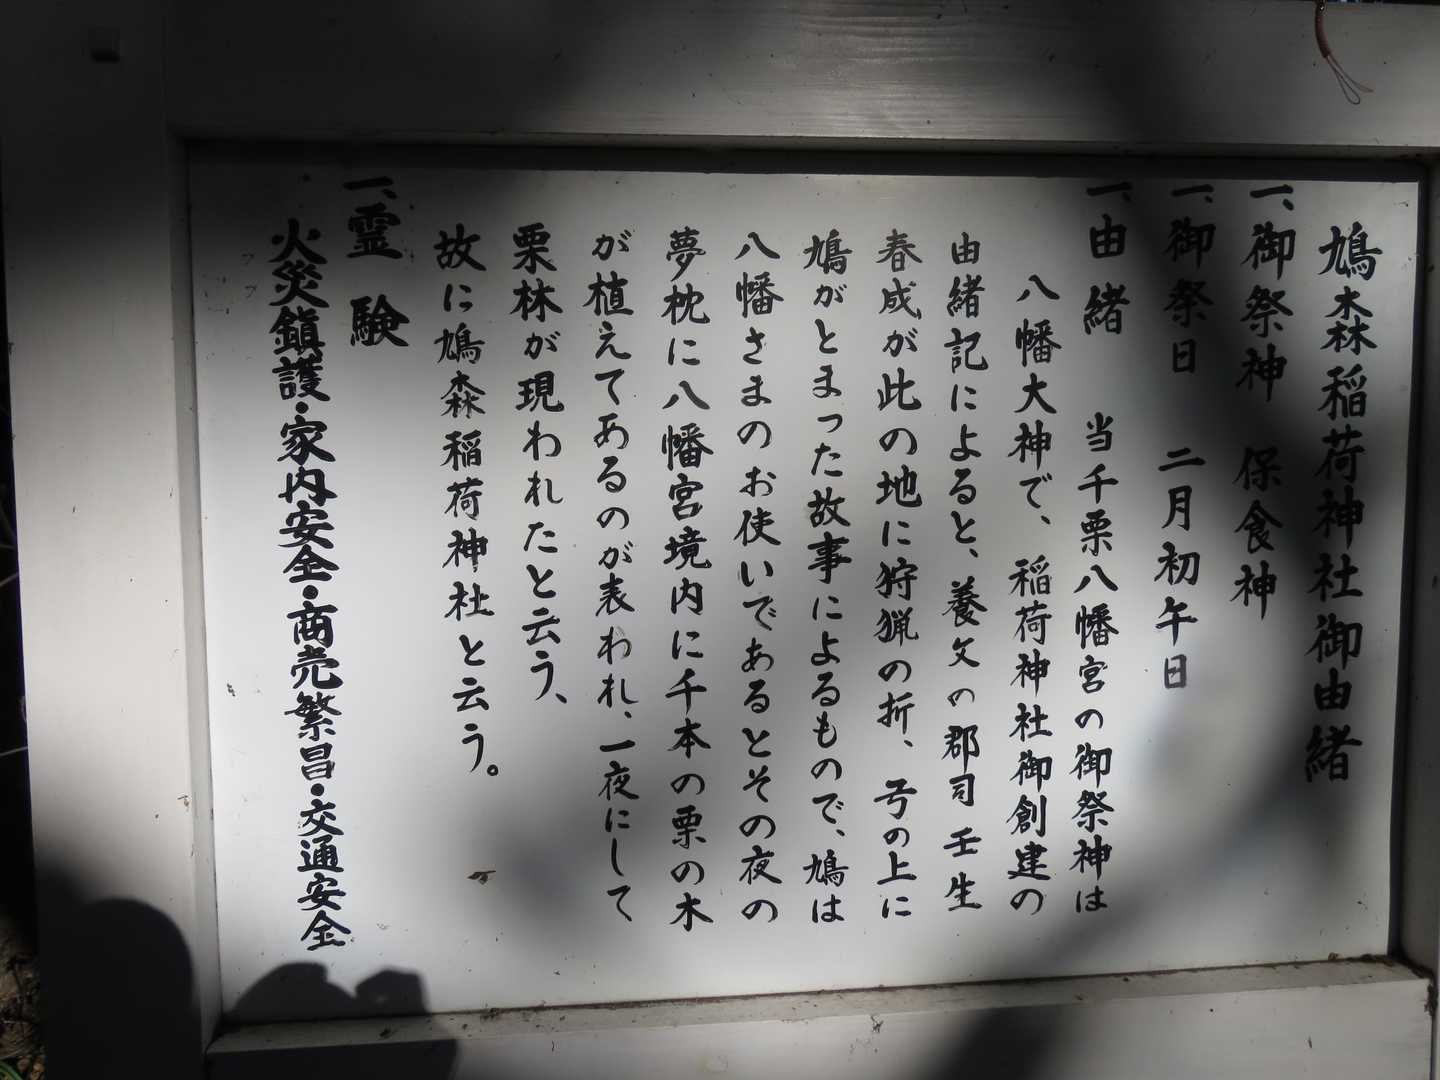 鳩森稲荷神社御由緒
一、御祭神　保食神
一、御祭日　二月初午日
一、由緒　当千栗八幡宮の御祭神は
八幡大神で、稲荷神社御創建の
由緒記によると、養父の郡司壬生
春成が此の地に狩猟の折、弓の上に
鳩がとまった故事によるもので、鳩は
八幡さまのお使いであるとその夜の
夢枕に八幡宮境内に千本の栗の木
が植えてあるのが表われ、一夜にして
栗林が現われたと云う、
故に鳩森稲荷神社と云う。
一、霊験
火災鎮護・家内安全・商売繁昌・交通安全